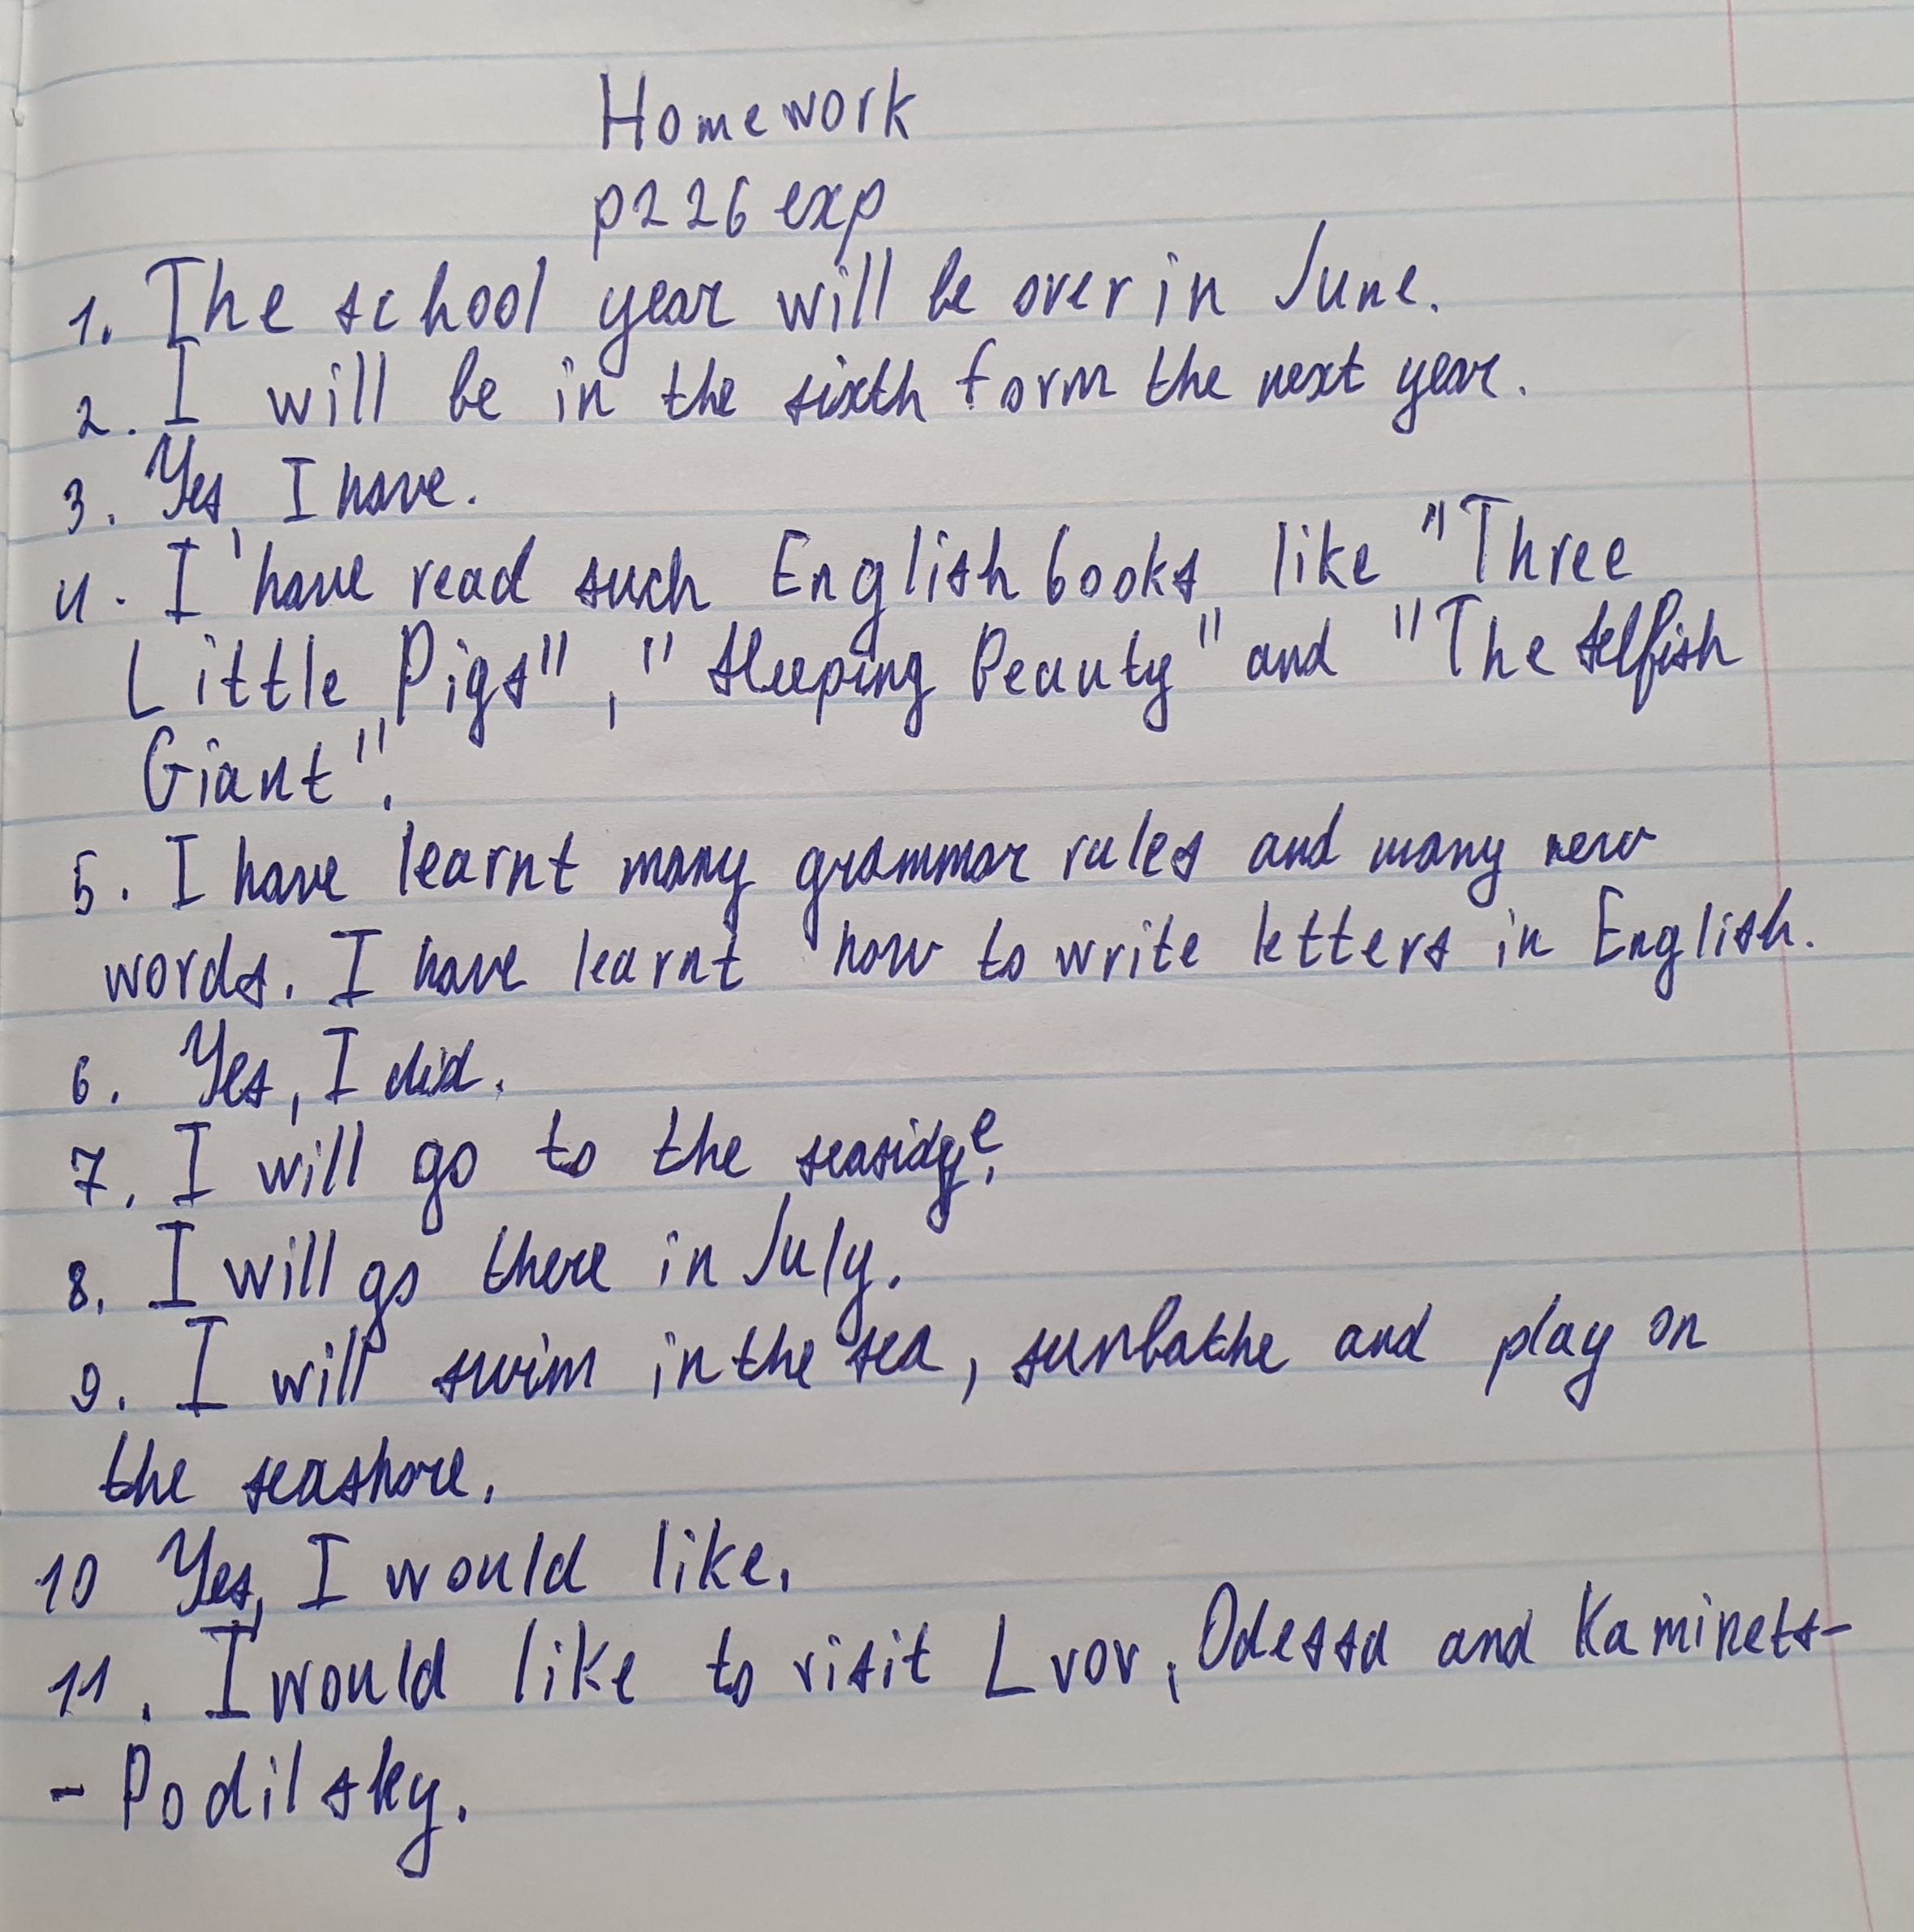 Homework
p226 exp
1. The school year will be over in June.
2. I will be in the sixth form the next year.
3. Yes, I have.
4. I have read such English books like "Three
Little Pigs", "Sleeping Beauty" and "The Selfish
Giant".
5. I have learnt many grammar rules and many new
words. I have learnt how to write letters in English.
6. Yes, I did.
7. I will go to the seasidge.
8. I will go there in July.
9. I will swim in the sea, sunbathe and play on
the seashore.
10 Yes, I would like.
11. I would like to visit Lvov, Odessa and Kaminets-
- Podilsky.